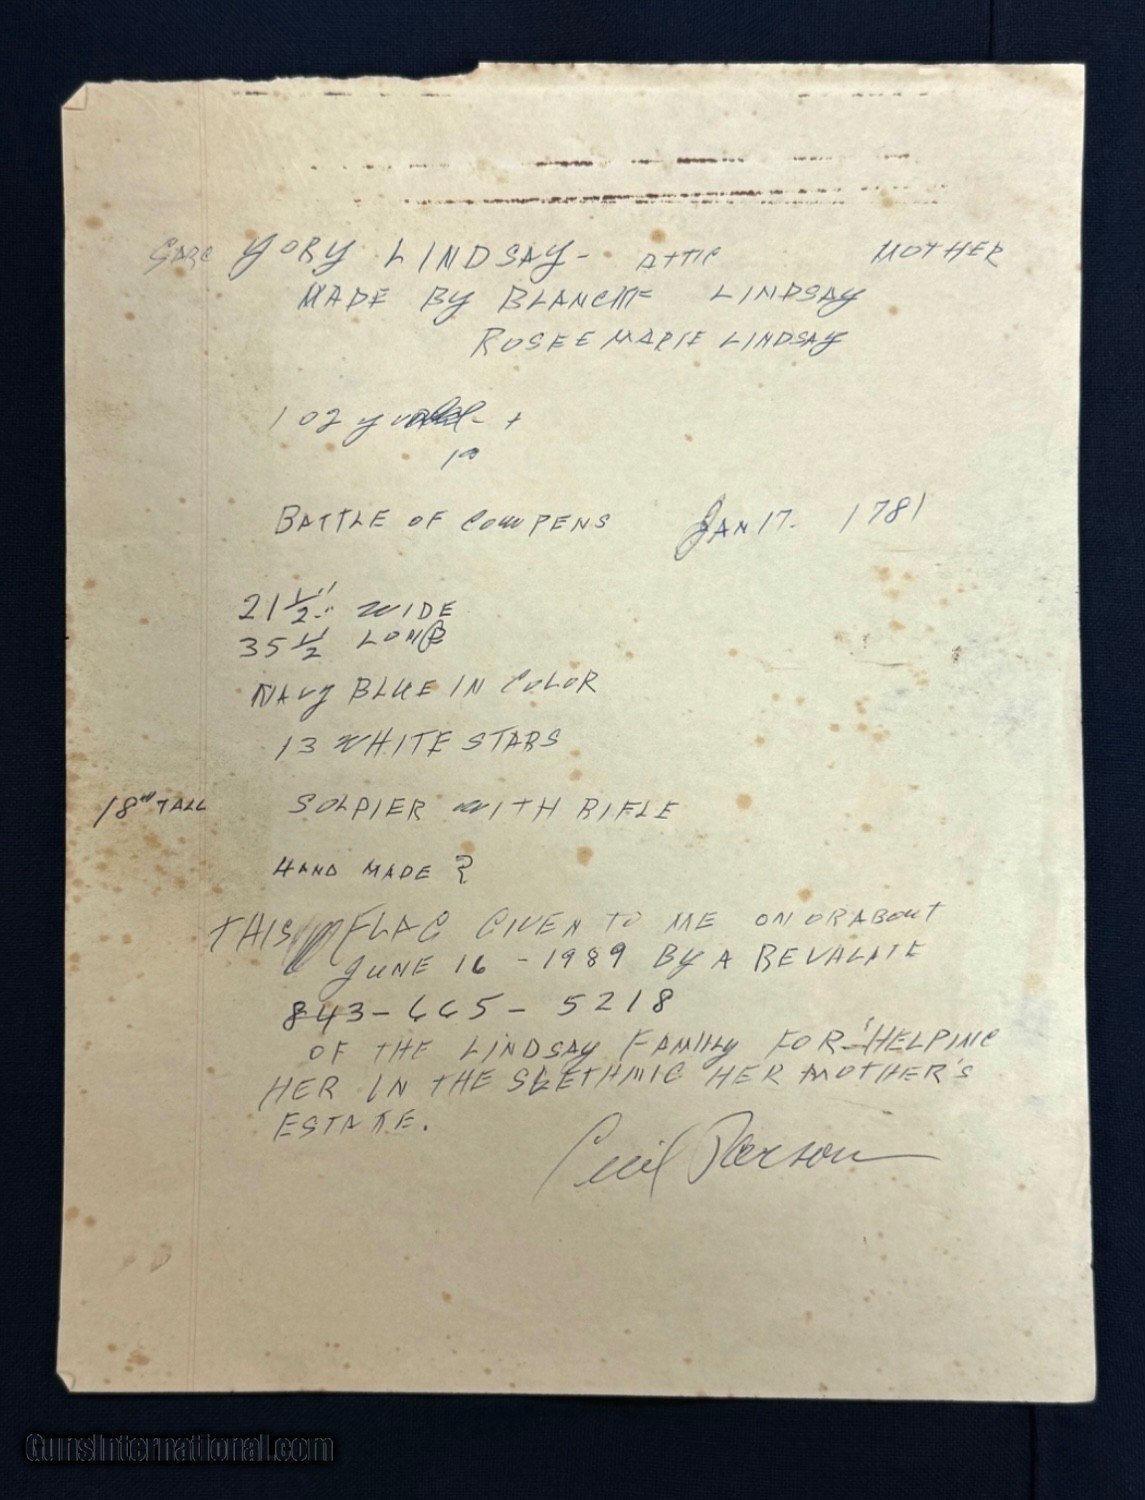 YORY LINDSAY - ATTIC MOTHER
MADE BY BLANCHE LINDSAY
ROSEE MARIE LINDSAY
102 y +
100
BATTLE OF COWPENS JAN 17. 1781
21 1/2" WIDE
35 1/2 LONG
NAVY BLUE IN COLOR
13 WHITE STARS
18" TALL SOLDIER WITH RIFLE
HAND MADE ?
THIS FLAG GIVEN TO ME ON OR ABOUT
JUNE 16 - 1989 BY A REVALATE
843-665-5218
OF THE LINDSAY FAMILY FOR HELPING
HER IN THE HER MOTHER'S
ESTATE.
Cecil Pearson
GunsInternational.com